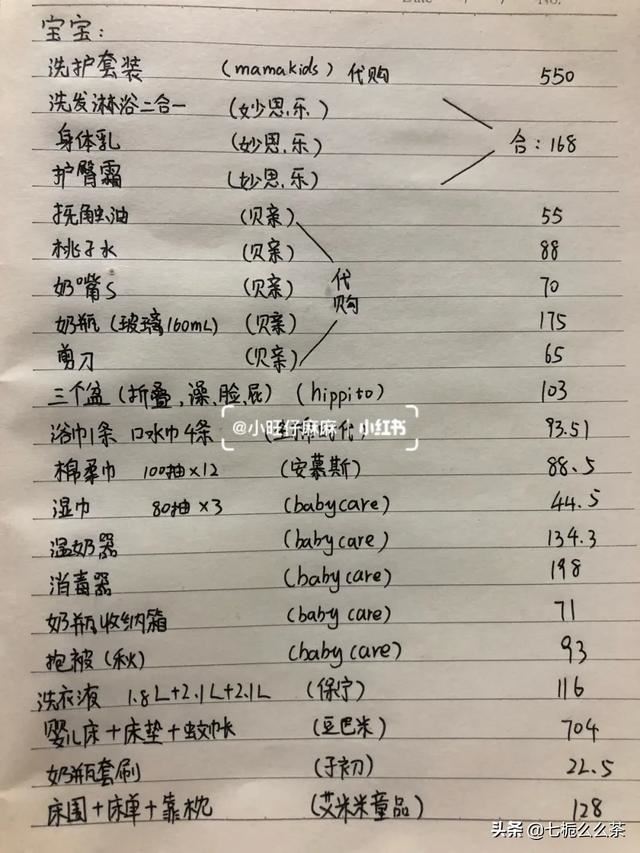 Date No.
宝宝:
洗护套装 (mamakids) 代购 550
洗发淋浴二合一 (妙思乐)
身体乳 (妙思乐) 合:168
护臀霜 (妙思乐)
抚触油 (贝亲) 55
桃子水 (贝亲) 88
奶嘴S (贝亲) 代购 70
奶瓶(玻璃160mL) (贝亲) 175
剪刀 (贝亲) 65
三个盆(折叠、澡、脸、屁) (hippito) 103
@小旺仔麻麻 小红书
浴巾1条 口水巾4条 时代) 93.51
棉柔巾 100抽×12 (安慕斯) 88.5
湿巾 80抽×3 (babycare) 44.5
温奶器 (babycare) 134.3
消毒器 (babycare) 198
奶瓶收纳箱 (babycare) 71
抱被(秋) (babycare) 93
洗衣液 1.8L+2.1L+2.1L (保宁) 116
婴儿床+床垫+蚊帐 (豆巴米) 704
奶瓶套刷 (子初) 22.5
床围+床单+靠枕 (艾米米童品) 128
头条@七栀么么茶